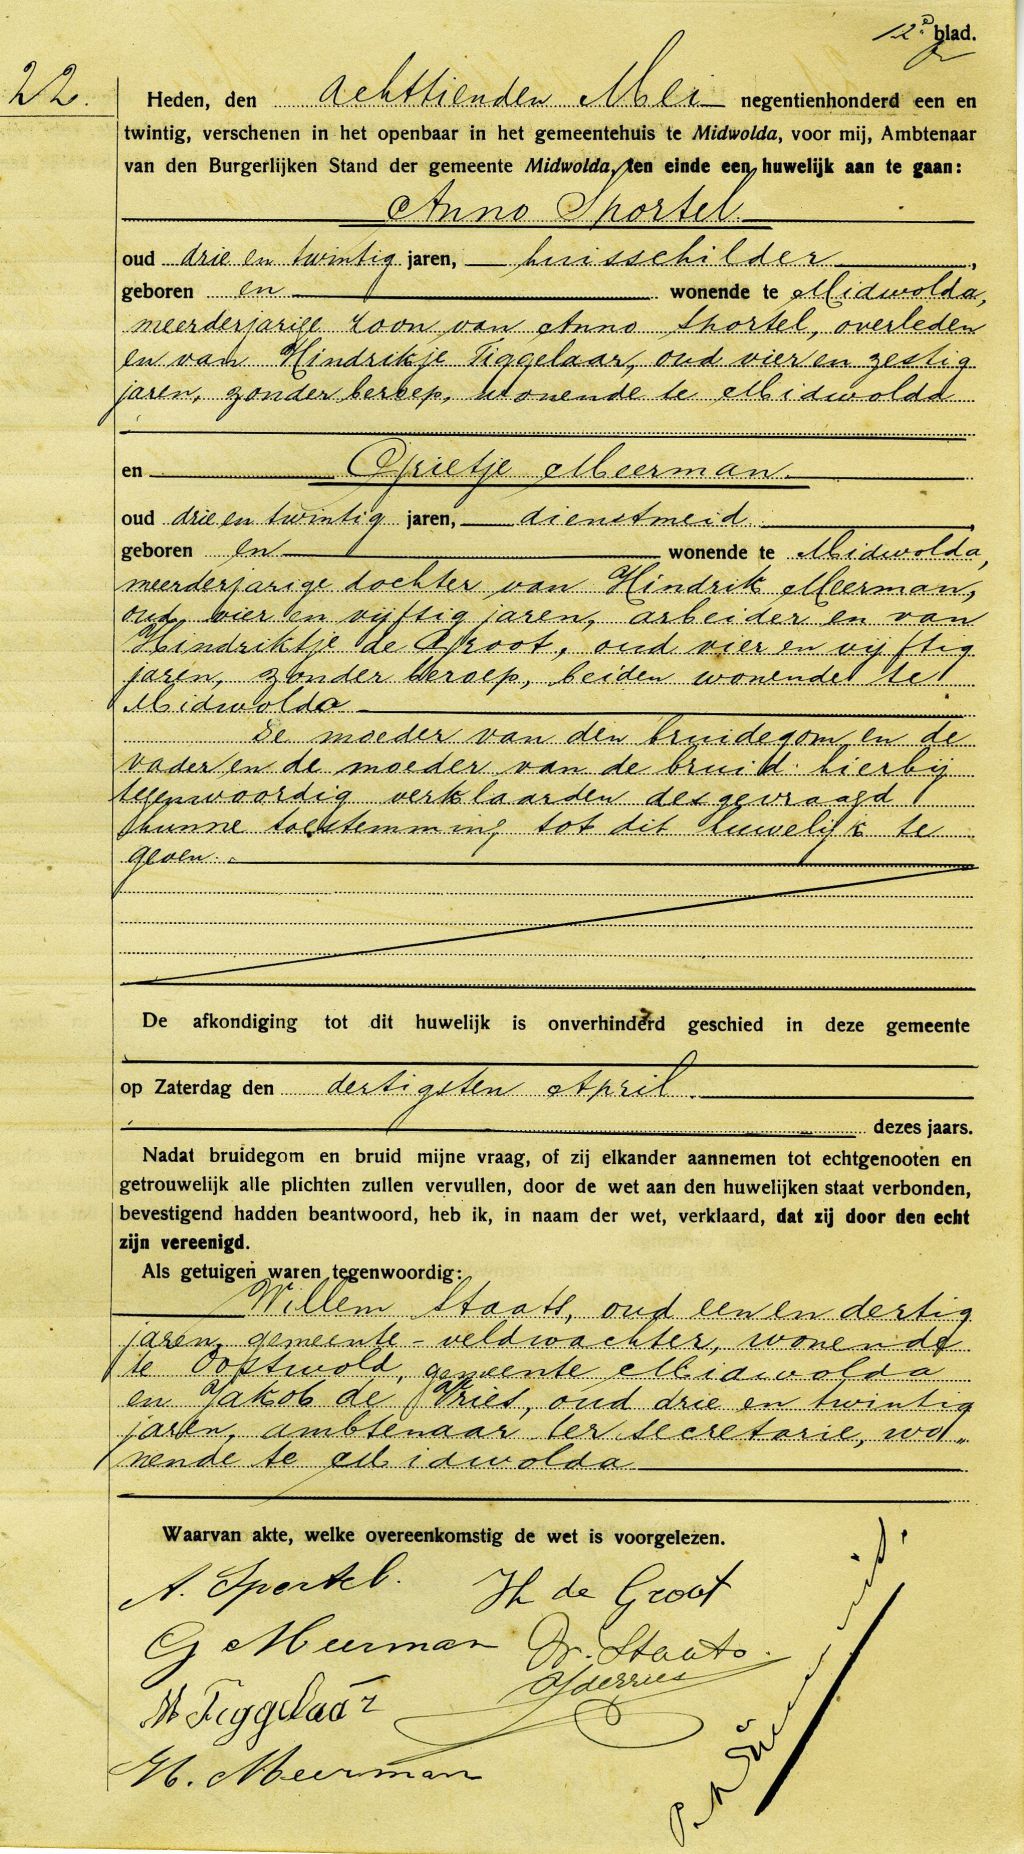 12e blad.
22.
Heden, den achttienden Mei negentienhonderd een en
twintig, verschenen in het openbaar in het gemeentehuis te Midwolda, voor mij, Ambtenaar
van den Burgerlijken Stand der gemeente Midwolda, ten einde een huwelijk aan te gaan:
Anno Sportel
oud drie en twintig jaren, huisschilder,
geboren en wonende te Midwolda,
meerderjarige zoon van Anno Sportel, overleden
en van Hindrikje Tiggelaar, oud vier en zestig
jaren, zonder beroep, wonende te Midwolda
en Grietje Meerman.
oud drie en twintig jaren, dienstmeid
geboren en wonende te Midwolda,
meerderjarige dochter van Hindrik Meerman,
oud vier en vijftig jaren, arbeider en van
Hindriktje de Groot, oud vier en vijftig
jaren, zonder beroep, beiden wonende te
Midwolda
De moeder van den bruidegom en de
vader en de moeder van de bruid hierbij
tegenwoordig verklaarden desgevraagd
hunne toestemming tot dit huwelijk te
geven.
De afkondiging tot dit huwelijk is onverhinderd geschied in deze gemeente
op Zaterdag den dertigsten April.
dezes jaars.
Nadat bruidegom en bruid mijne vraag, of zij elkander aannemen tot echtgenooten en
getrouwelijk alle plichten zullen vervullen, door de wet aan den huwelijken staat verbonden,
bevestigend hadden beantwoord, heb ik, in naam der wet, verklaard, dat zij door den echt
zijn vereenigd.
Als getuigen waren tegenwoordig:
Willem Staats, oud een en dertig
jaren, gemeente-veldwachter, wonende
te Oostwold, gemeente Midwolda
en Jakob de Vries, oud drie en twintig
jaren, ambtenaar ter secretarie, wo„
nende te Midwolda
Waarvan akte, welke overeenkomstig de wet is voorgelezen.
A. Sportel. H de Groot
G Meerman W. Staats.
JdeVries
H Tiggelaar
H. Meerman